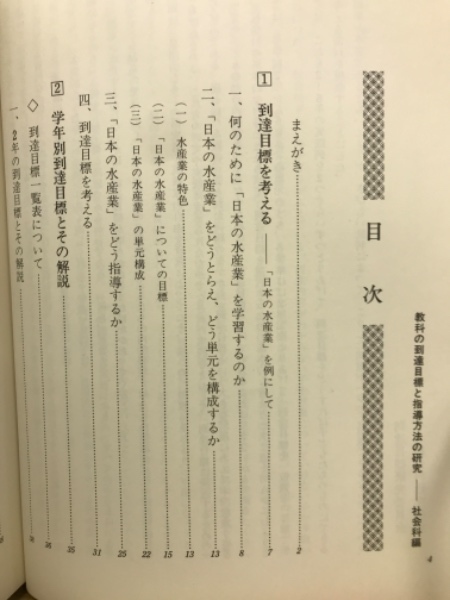 教科の到達目標と指導方法の研究——社会科編
4
目次
まえがき……2
1 到達目標を考える——「日本の水産業」を例にして……7
一、何のために「日本の水産業」を学習するのか……8
二、「日本の水産業」をどうとらえ、どう単元を構成するか……13
(一) 水産業の特色……13
(二) 「日本の水産業」についての目標……15
(三) 「日本の水産業」の単元構成……22
三、「日本の水産業」をどう指導するか……25
四、到達目標を考える……31
2 学年別到達目標とその解説……35
◇ 到達目標一覧表について……
一、2年の到達目標とその解説